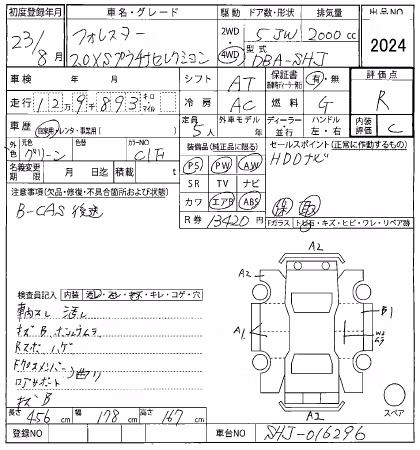 初度登録年月 車名・グレード 駆動 ドア数・形状 排気量 出品NO
23/8月 フォレスター 2WD 4WD 5 JW 2000cc 2024
2.0XSプラチナセレクション 型式 DBA-SHJ
車検 年 月 シフト AT 保証書 有・無 評価点
走行 129,893 キロ マイル 冷房 AC 燃料 G R
車歴 自家用 レンタ・事業用( ) 定員 5人 外車モデル 年 ディーラー 並行 ハンドル 左・右 内装評価 C
外色 元色 グリーン 色替 カラーNO C1F
装備品(純正品に限る) セールスポイント(正常に作動するもの)
PS PW AW HDDナビ
名義変更期限 月 日迄 積載 t
SR TV ナビ
注意事項(欠品・修復・不具合箇所および状態)
カワ エアB ABS 保 取
B-CAS 後送
R券 13420円 Fガラス トビ石・キズ・ヒビ・ワレ・リペア跡
A2
検査員記入 内装 汚レ・コゲ・穴 キレ
A2
車内スレ 汚レ B1
キズB A1 W2
Rスポ ハゲ
Fクロスメンバー 曲り
ロアサポート
キズB A2 スペア
長さ 456cm 幅 178cm 高さ 167cm
登録NO 車台NO SHJ-016296